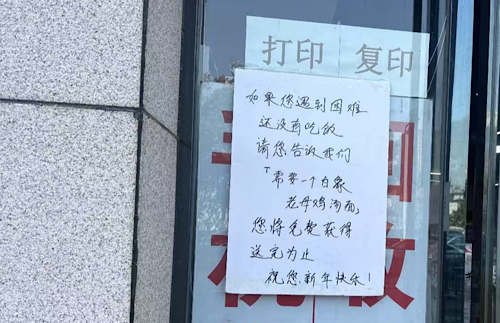 打印 复印
如果您遇到困难
还没有吃饭
请您告诉我们
「需要一个白象
老母鸡汤面」
您将免费获得
送完为止
祝您新年快乐！